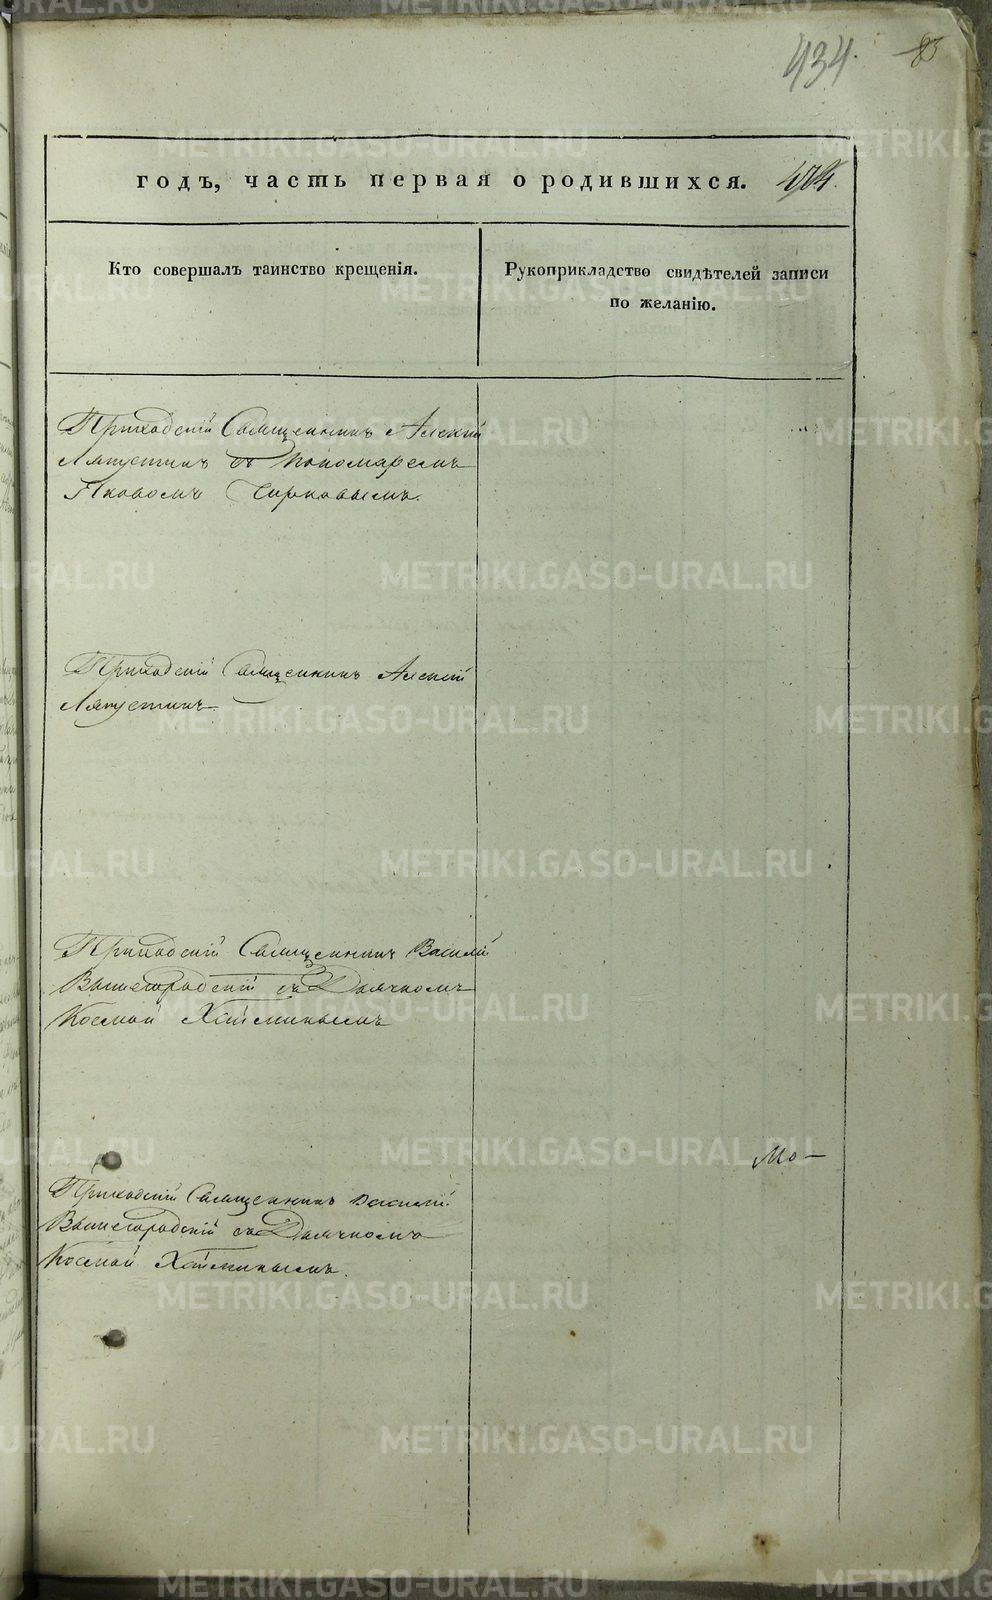 434. 83
годъ, часть первая о родившихся.
Кто совершалъ таинство крещенія.
Рукоприкладство свидѣтелей записи
по желанію.
Приходскій Священникъ Алексій
Ляпустинъ съ Пономаремъ
Яковомъ Чирковымъ.
Приходскій Священникъ Алексій
Ляпустинъ
Приходскій Священникъ Василій
Вышегородскій съ Дьячкомъ
Космой Хайминымъ
Мо—
Приходскій Священникъ Василій
Вышегородскій съ Дьячкомъ
Космой Хайминымъ.
METRIKI.GASO-URAL.RU